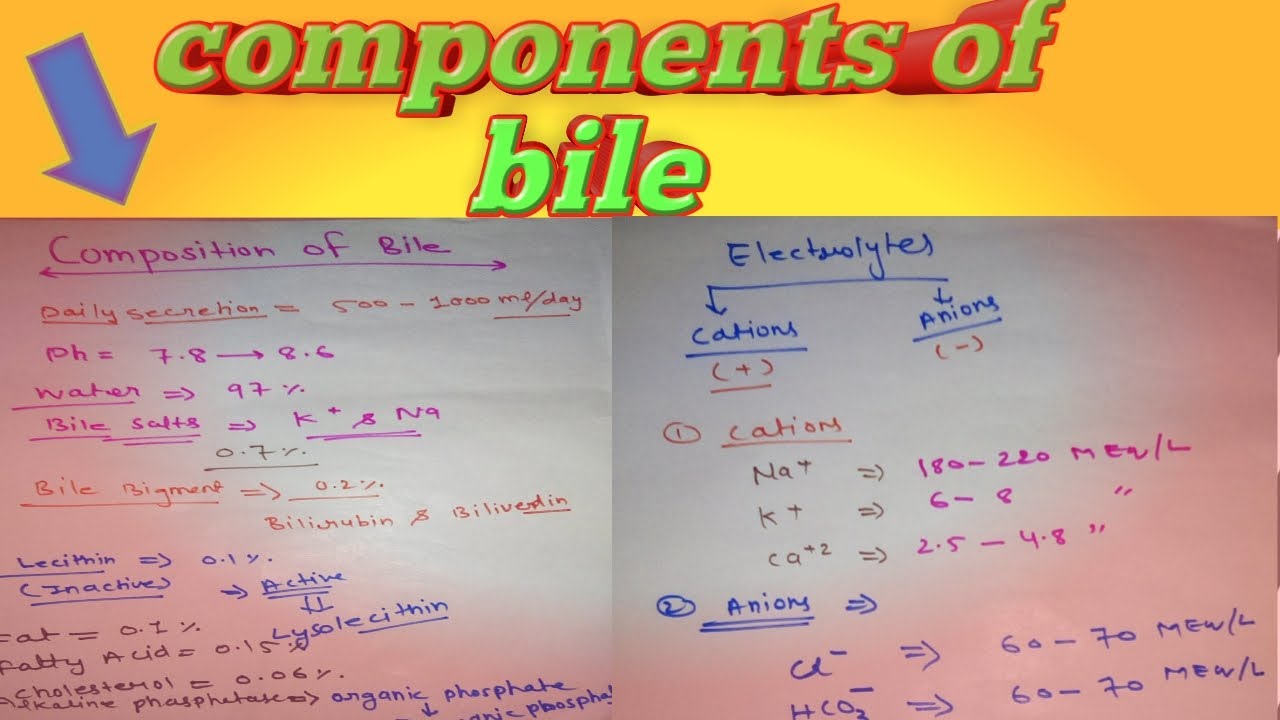 components of
bile
Composition of Bile
Daily secretion = 500 - 1000 ml/day
Ph = 7.8 → 8.6
Water => 97 %.
Bile Salts => K+ & Na
0.7 %.
Bile Bigment => 0.2 %.
Bilirubin & Biliverdin
Lecithin => 0.1 %.
(Inactive) → Active
Lysolecithin
Fat = 0.1 %
Fatty Acid = 0.15 %
Cholesterol = 0.06 %.
Alkaline phosphetase => organic phosphate
Electrolytes
Cations Anions
(+) (-)
① Cations
Na+ => 180 - 220 MEQ/L
K+ => 6 - 8 "
Ca+2 => 2.5 - 4.8 "
② Anions =>
Cl- => 60 - 70 MEQ/L
HCO3- => 60 - 70 MEQ/L